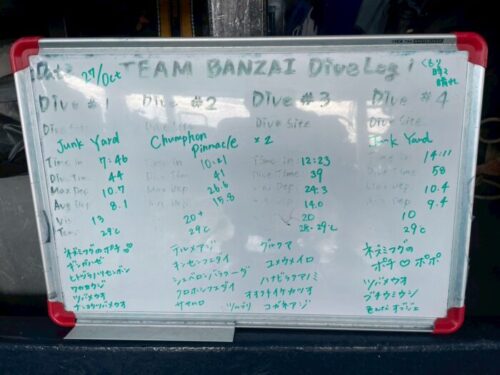 Date 27/Oct TEAM BANZAI Dive Log! くもり 時々 晴れ
Dive #1 Dive #2 Dive #3 Dive #4
Dive Site Dive Site Dive Site Dive Site
Junk Yard Chumphon Pinnacle ×2 Junk Yard
Time in 7:46 Time in Time in 12:23 Time in 14:11
Dive Time 44 Dive Time 41 Dive Time 39 Dive Time 58
Max Dep. 10.7 Max Dep. 26.6 Max Dep. 24.3 Max Dep. 10.4
Avg Dep. 8.1 Avg Dep. 15.8 Avg Dep. 14.0 Avg Dep. 9.4
Vis 13 20+ 20 10
Tem 29℃ 29℃ 28-29℃ 29℃
ネズミフグのポチ テルメアジ グルクマ ネズミフグの
キンセンフエダイ ユメウメイロ ポチ♡ポポ
シェブロンバラクーダ ハナビラクマノミ ツバメウオ
ワカウツボ クロホシフエダイ オオフトイカカツオ ブチウミウシ
ツバメウオ
サワラ ツムブリ コガネアジ